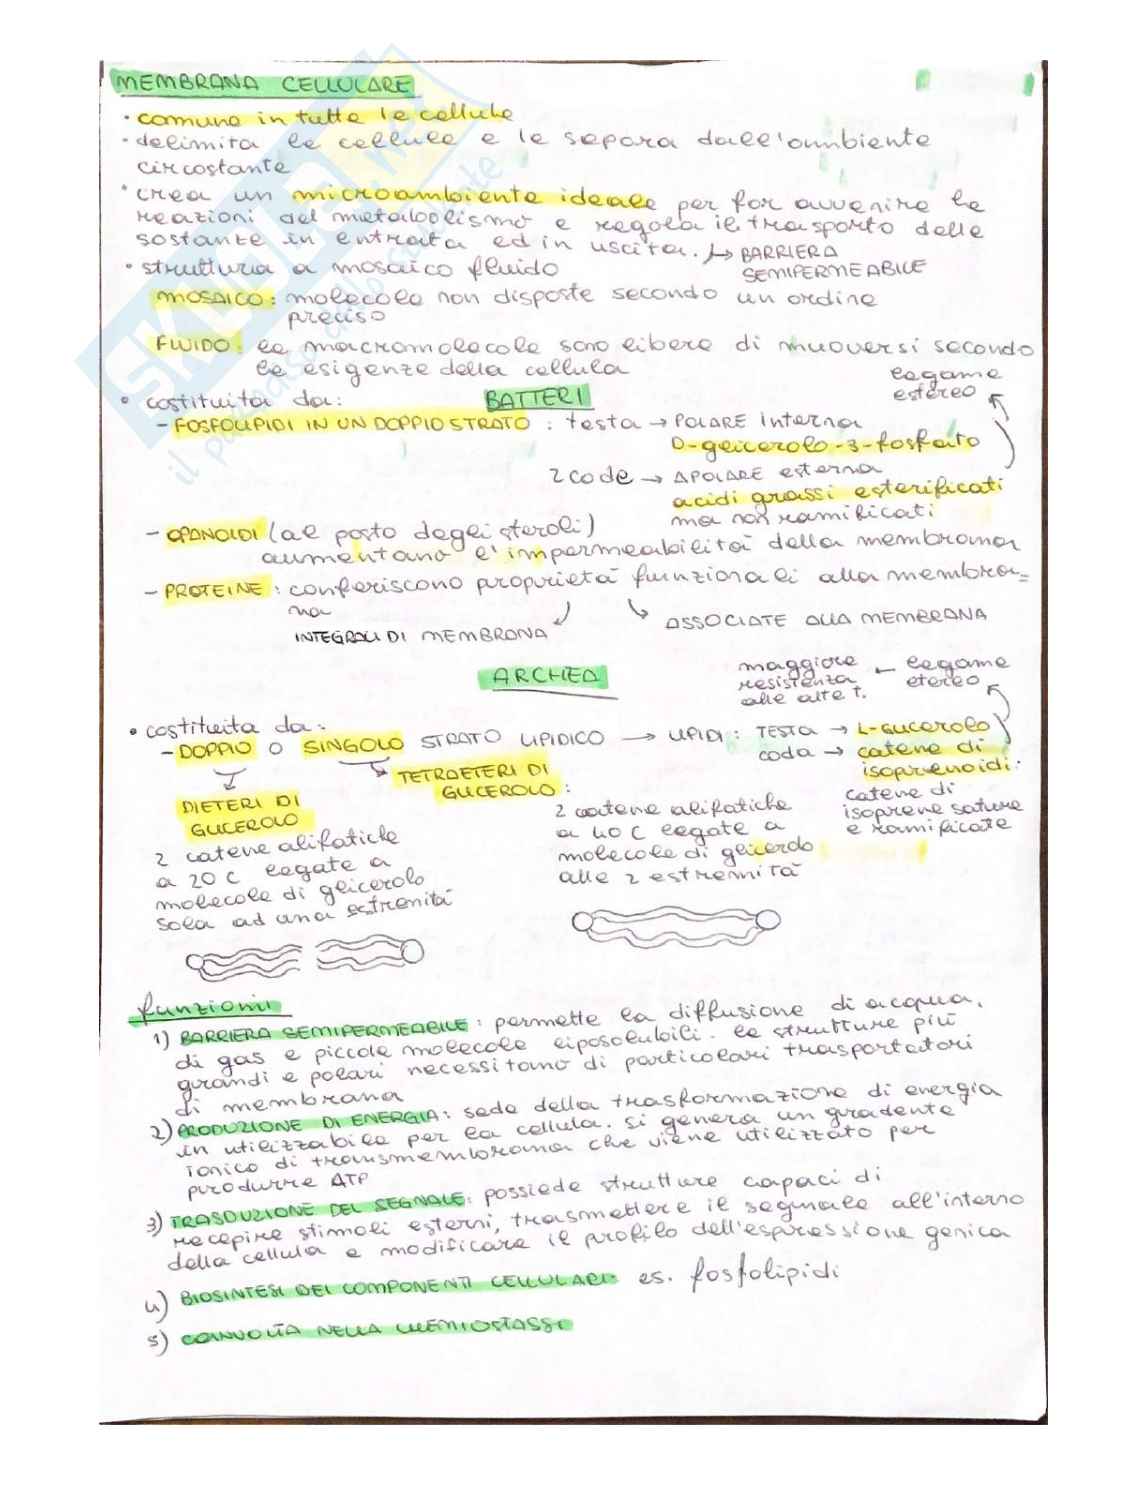 MEMBRANA CELLULARE
• comune in tutte le cellule
• delimita le cellule e le separa dall'ambiente
circostante
• crea un microambiente ideale per far avvenire le
reazioni del metabolismo e regola il trasporto delle
sostante in entrata ed in uscita. ↳ BARRIERA
SEMIPERMEABILE
• struttura a mosaico fluido
MOSAICO: molecole non disposte secondo un ordine
preciso
FLUIDO: le macromolecole sono libere di muoversi secondo
le esigenze della cellula
legame
estereo
• costituita da:
BATTERI
- FOSFOLIPIDI IN UN DOPPIO STRATO : testa → POLARE interna
D-glicerolo-3-fosfato
2 code → APOLARE esterna
acidi grassi esterificati
ma non ramificati
- OPANOIDI (al posto degli steroli)
aumentano l'impermeabilità della membrana
- PROTEINE : conferiscono proprietà funzionali alla membra=
na
INTEGRALI DI MEMBRANA
ASSOCIATE ALLA MEMBRANA
ARCHEA
maggiore ← legame
resistenza etereo
alle alte t.
• costituita da:
- DOPPIO O SINGOLO STRATO LIPIDICO → LIPIDI : TESTA → L-GLICEROLO
coda → catene di
isoprenoidi:
catene di
isoprene sature
e ramificate
TETRAETERI DI
GLICEROLO :
2 catene alifatiche
a 40 C legate a
molecole di glicerolo
alle 2 estremità
DIETERI DI
GLICEROLO
2 catene alifatiche
a 20 C legate a
molecole di glicerolo
solo ad una estremità
funzioni
1) BARRIERA SEMIPERMEABILE : permette la diffusione di acqua,
di gas e piccole molecole liposolubili. le strutture più
grandi e polari necessitano di particolari trasportatori
di membrana
2) PRODUZIONE DI ENERGIA : sede della trasformazione di energia
in utilizzabile per la cellula. si genera un gradente
ionico di transmembrana che viene utilizzato per
produrre ATP
3) TRASDUZIONE DEL SEGNALE : possiede strutture capaci di
recepire stimoli esterni, trasmettere il segnale all'interno
della cellula e modificare il profilo dell'espressione genica
4) BIOSINTESI DEI COMPONENTI CELLULARI: es. fosfolipidi
5) COINVOLTA NELLA
SKUOLA.net
il paradiso dello studente